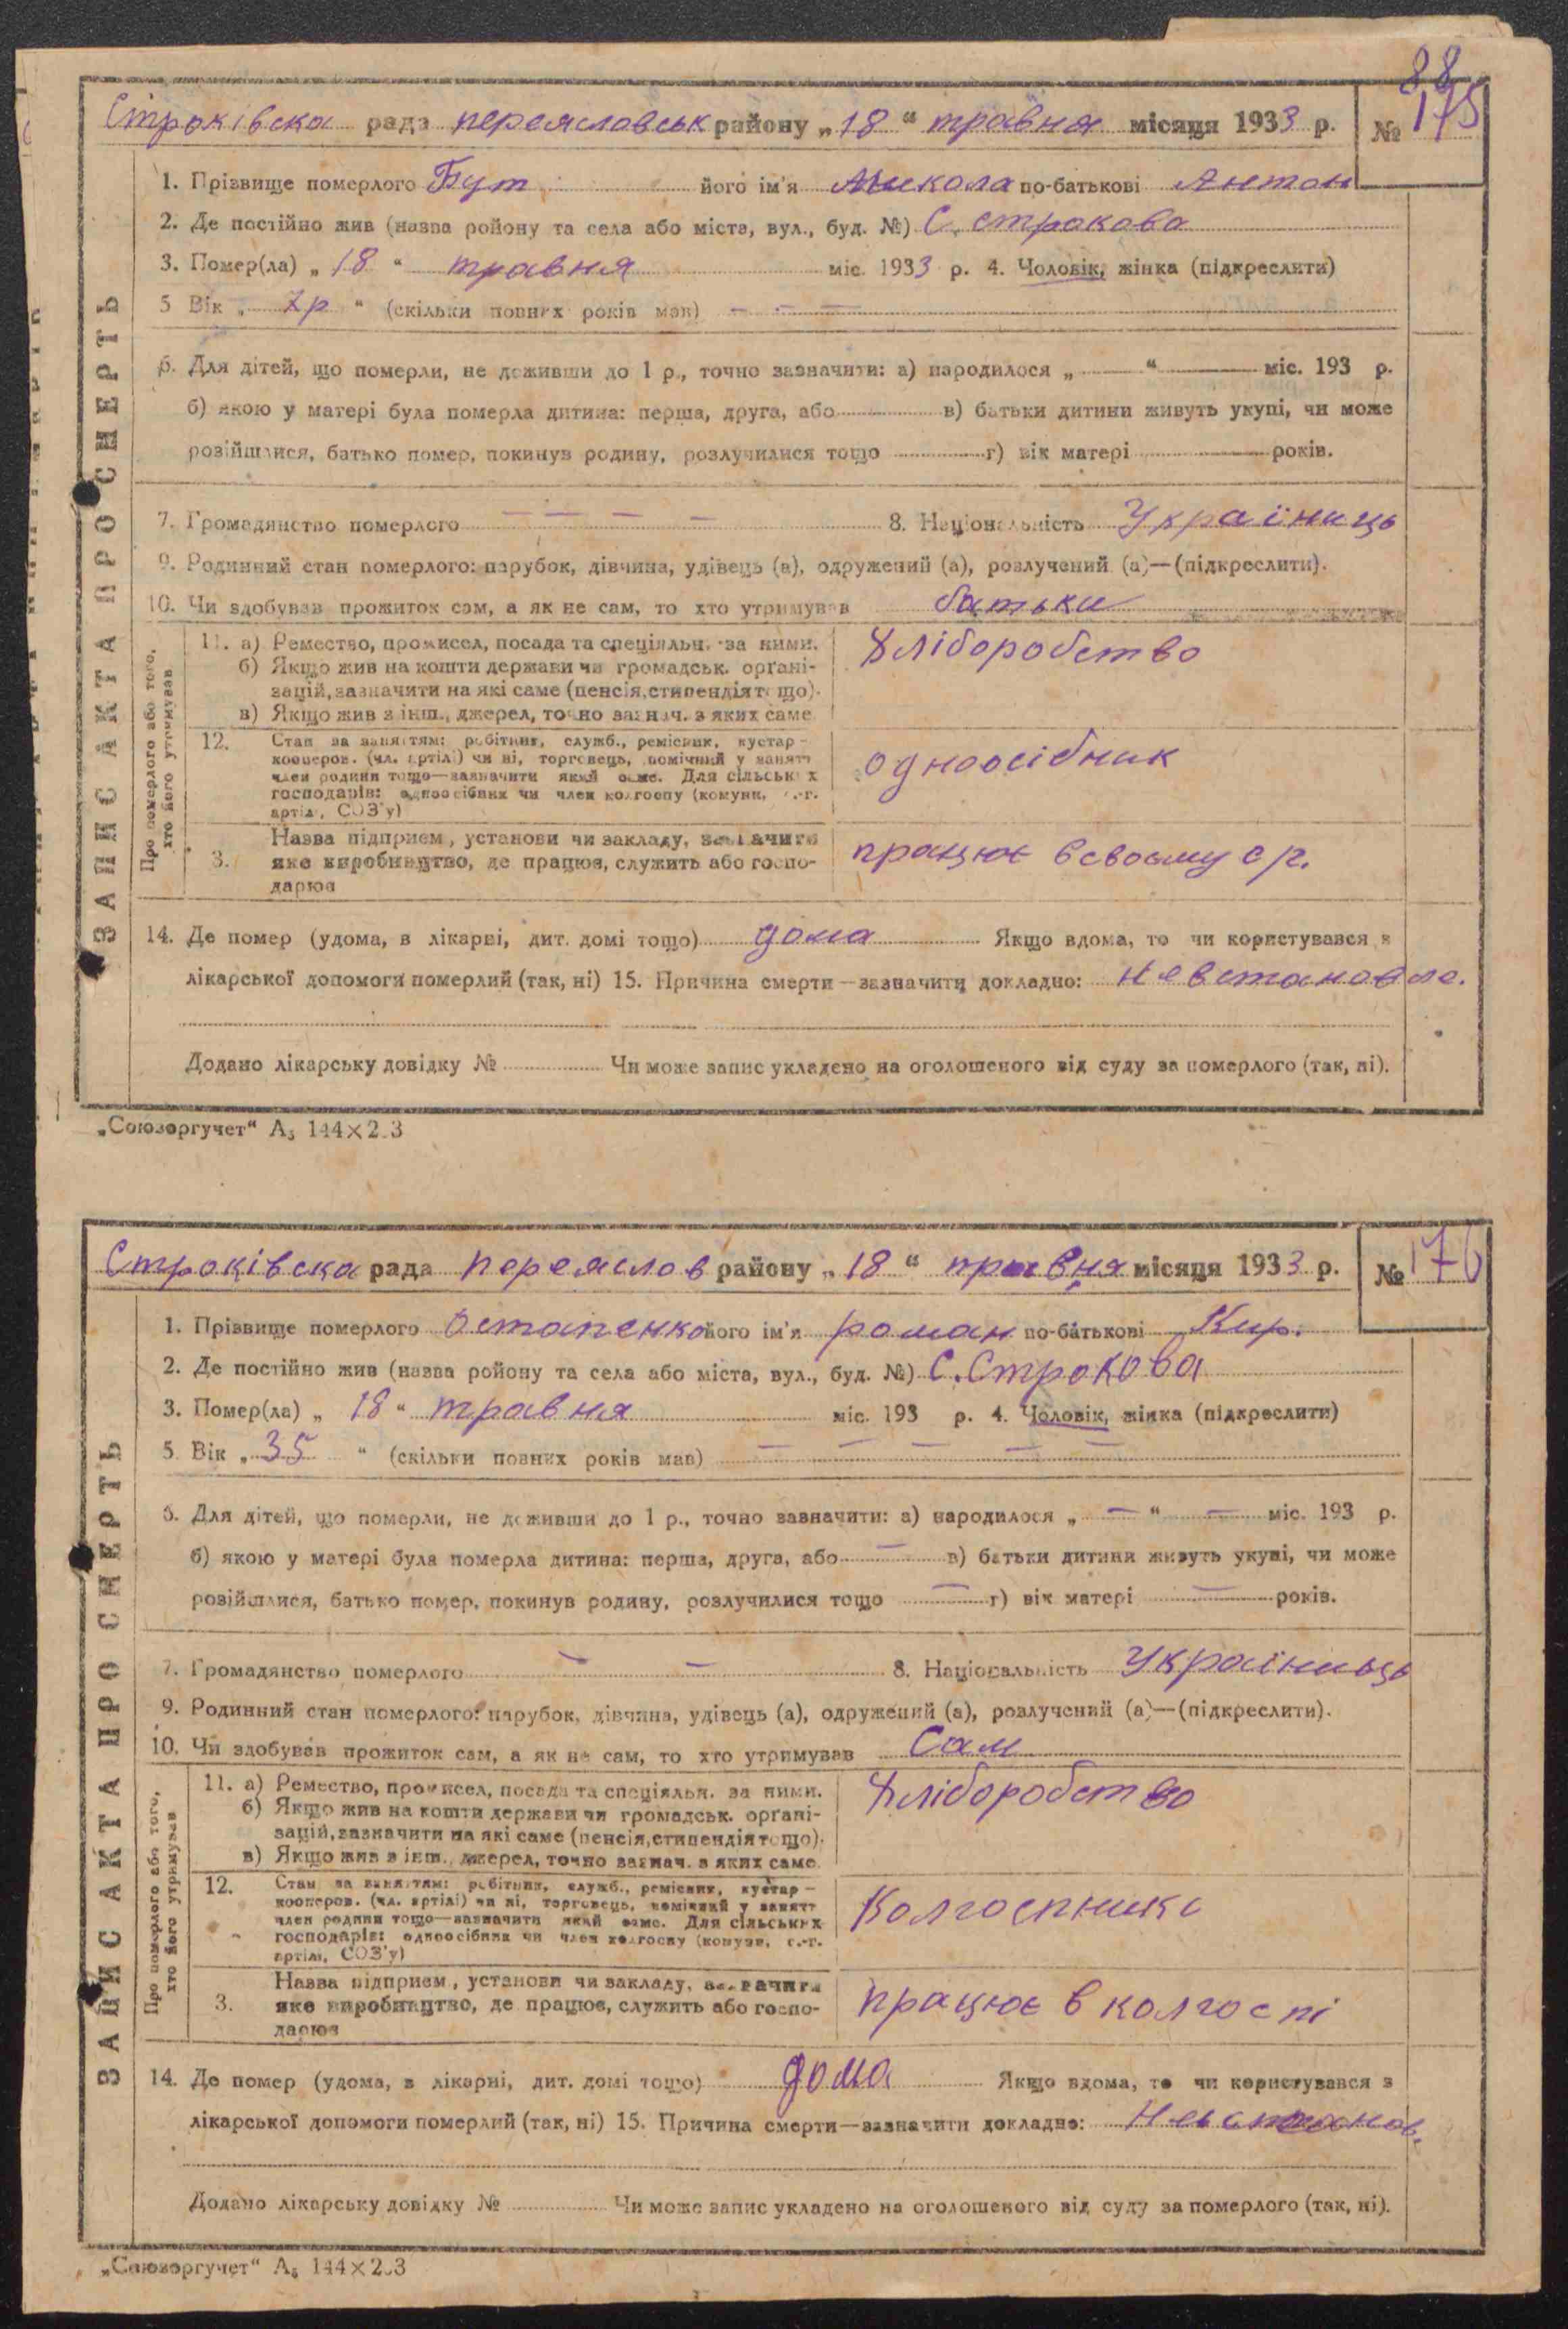 88
Строківска рада переясловськ району „18“ травня місяця 1933 р. № 175
ЗАПИС АКТА ПРО СМЕРТЬ
1. Прізвище померлого Бут його ім'я Микола по-батькові Антон
2. Де постійно жив (назва району та села або міста, вул., буд. №) С. Строкова
3. Помер(ла) „18“ травня міс. 1933 р. 4. Чоловік, жінка (підкреслити)
5 Вік „ р “ (скільки повних років мав) — — —
6. Для дітей, що померли, не доживши до 1 р., точно зазначити: а) народилося „ — “ — міс. 193 р.
б) якою у матері була померла дитина: перша, друга, або в) батьки дитини живуть укупі, чи може
розійшлися, батько помер, покинув родину, розлучилися тощо г) вік матері років.
7. Громадянство померлого — — — — 8. Національність Україниць
9. Родинний стан померлого: парубок, дівчина, удівець (а), одружений (а), розлучений (а)—(підкреслити).
10. Чи здобував прожиток сам, а як не сам, то хто утримував батьки
Про померлого або того, хто його утримував
11. а) Ремество, промисел, посада та спеціяльн. за ними. Хліборобство
б) Якщо жив на кошти держави чи громадськ. органі-
зацій, зазначити на які саме (пенсія, стипендія тощо).
в) Якщо жив з інш., джерел, точно зазнач. з яких саме
12. Стан за заняттям: робітник, служб., ремісник, кустар — одноосібник
кооперов. (чл. артілі) чи ні, торговець, помічний у занятт
член родини тощо—зазначити який саме. Для сільських
господарів: одноосібник чи член колгоспу (комуни, с.-г.
артілі, СОЗ'у)
3. Назва підприєм, установи чи закладу, зазначити
яке виробництво, де працює, служить або госпо- працює всвоєму с/г.
дарює
14. Де помер (удома, в лікарні, дит. домі тощо) дома Якщо вдома, то чи користувався з
лікарської допомоги померлий (так, ні) 15. Причина смерти—зазначити докладно: Невстановле.
Додано лікарську довідку № Чи може запис укладено на оголошеного від суду за померлого (так, ні).
„Союзоргучет“ А5 144×203
Строківска рада переяслов району „18“ травня місяця 1933 р. № 176
ЗАПИС АКТА ПРО СМЕРТЬ
1. Прізвище померлого Остапенко його ім'я роман по-батькові Кир.
2. Де постійно жив (назва району та села або міста, вул., буд. №) С. Строкова
3. Помер(ла) „18“ травня міс. 193 р. 4. Чоловік, жінка (підкреслити)
5 Вік „35“ (скільки повних років мав) — — — — —
6. Для дітей, що померли, не доживши до 1 р., точно зазначити: а) народилося „ — “ — міс. 193 р.
б) якою у матері була померла дитина: перша, друга, або — в) батьки дитини живуть укупі, чи може
розійшлися, батько помер, покинув родину, розлучилися тощо — г) вік матері — років.
7. Громадянство померлого — — 8. Національність Україниць
9. Родинний стан померлого: парубок, дівчина, удівець (а), одружений (а), розлучений (а)—(підкреслити).
10. Чи здобував прожиток сам, а як не сам, то хто утримував Сам
Про померлого або того, хто його утримував
11. а) Ремество, промисел, посада та спеціяльн. за ними. Хліборобство
б) Якщо жив на кошти держави чи громадськ. органі-
зацій, зазначити на які саме (пенсія, стипендія тощо).
в) Якщо жив з інш., джерел, точно зазнач. з яких саме
12. Стан за заняттям: робітник, служб., ремісник, кустар —
кооперов. (чл. артілі) чи ні, торговець, помічний у занятт
член родини тощо—зазначити який саме. Для сільських Колгоспникі
господарів: одноосібник чи член колгоспу (комуни, с.-г.
артілі, СОЗ'у)
3. Назва підприєм, установи чи закладу, зазначити
яке виробництво, де працює, служить або госпо- працює в колгоспі
дарює
14. Де помер (удома, в лікарні, дит. домі тощо) дома Якщо вдома, то чи користувався з
лікарської допомоги померлий (так, ні) 15. Причина смерти—зазначити докладно: Невстанов.
Додано лікарську довідку № Чи може запис укладено на оголошеного від суду за померлого (так, ні).
„Союзоргучет“ А5 144×203